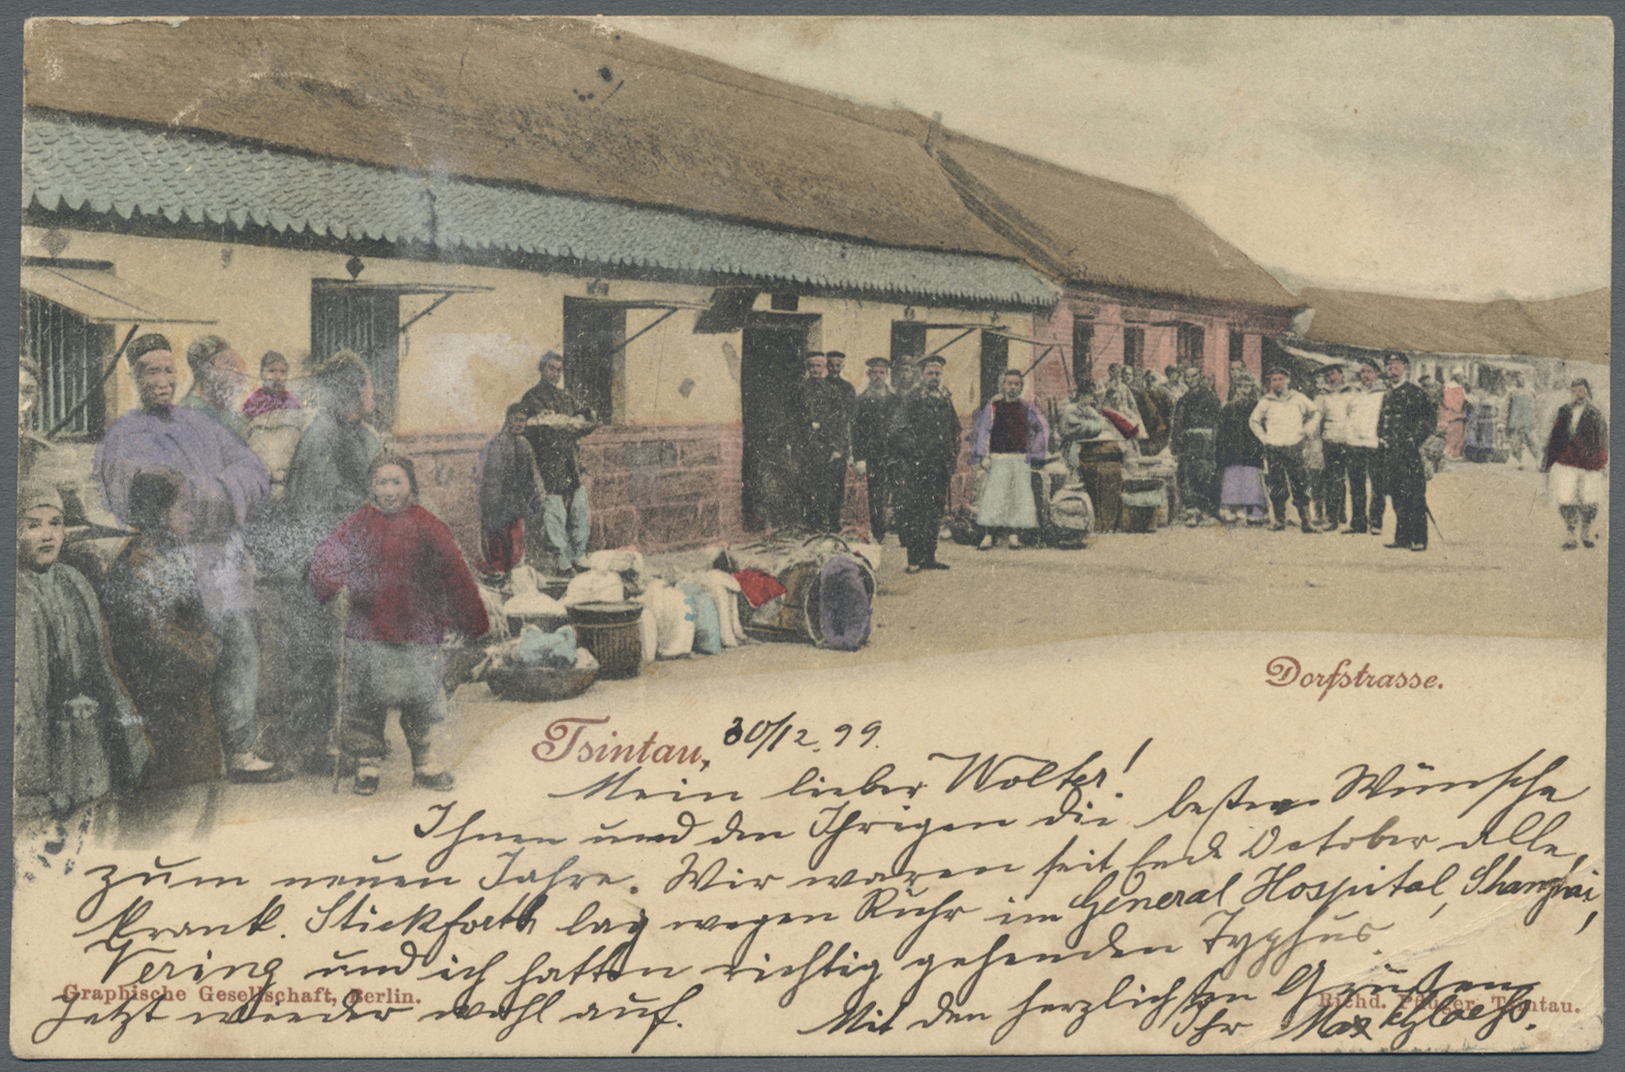 Dorfstrasse.
Tsintau, 30/12. 99.
Mein lieber Wolter!
Ihnen und den Ihrigen die besten Wünsche
zum neuen Jahre. Wir waren seit Ende October alle
krank. Stickforth lag wegen Ruhr im General Hospital, Shanghai,
Vering und ich hatten richtig gehenden Typhus.
Jetzt wieder wohl auf. Mit den herzlichsten Grüßen
Ihr Max
Graphische Gesellschaft, Berlin.
Richd. Pflüger, Tsintau.